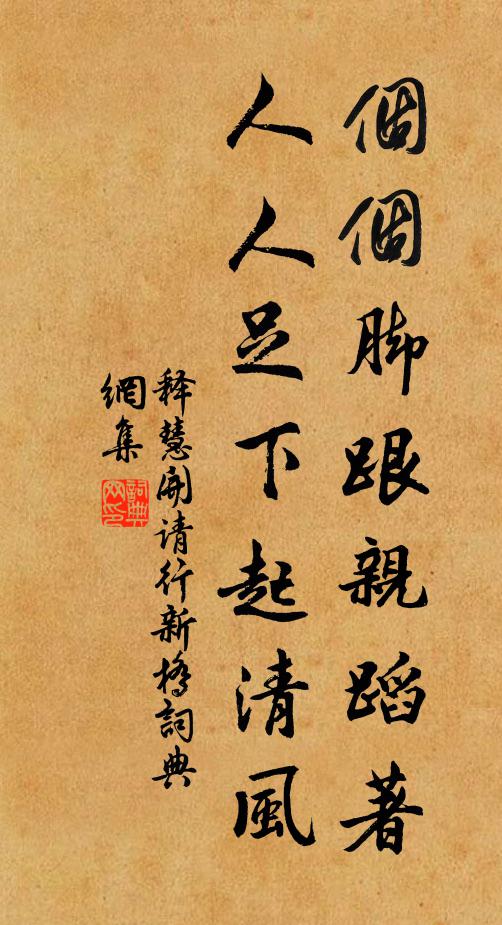 個個脚跟親蹈著
人人足下起清風
释慧開请行新橋詞典
網集
詞典
网印